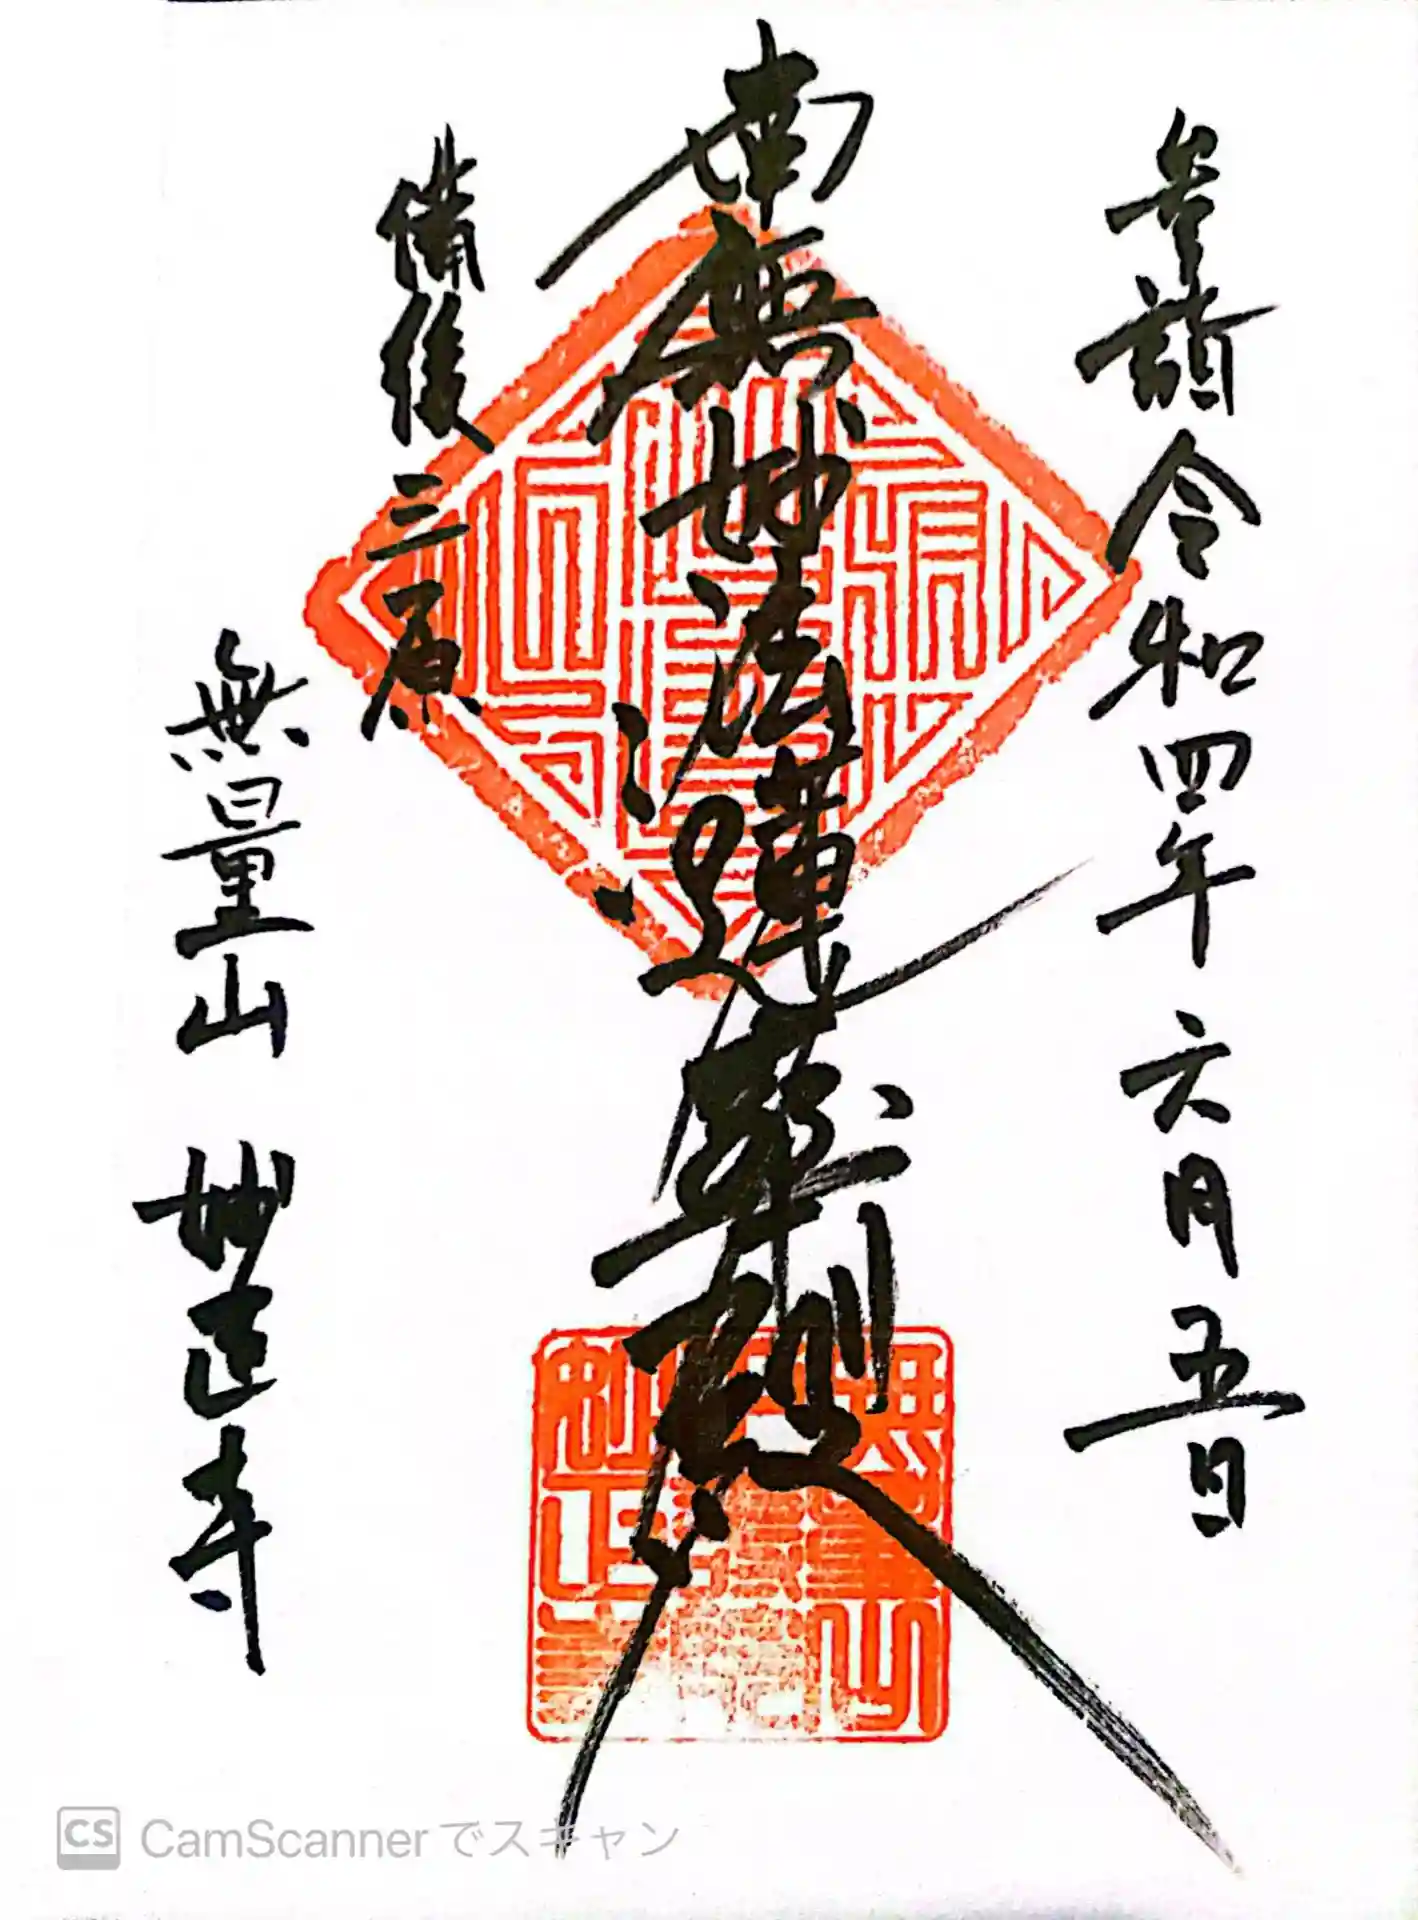 参詣 令和四年 六月五日
南無妙法蓮華経
備後三原
無量山 妙正寺
CamScannerでスキャン